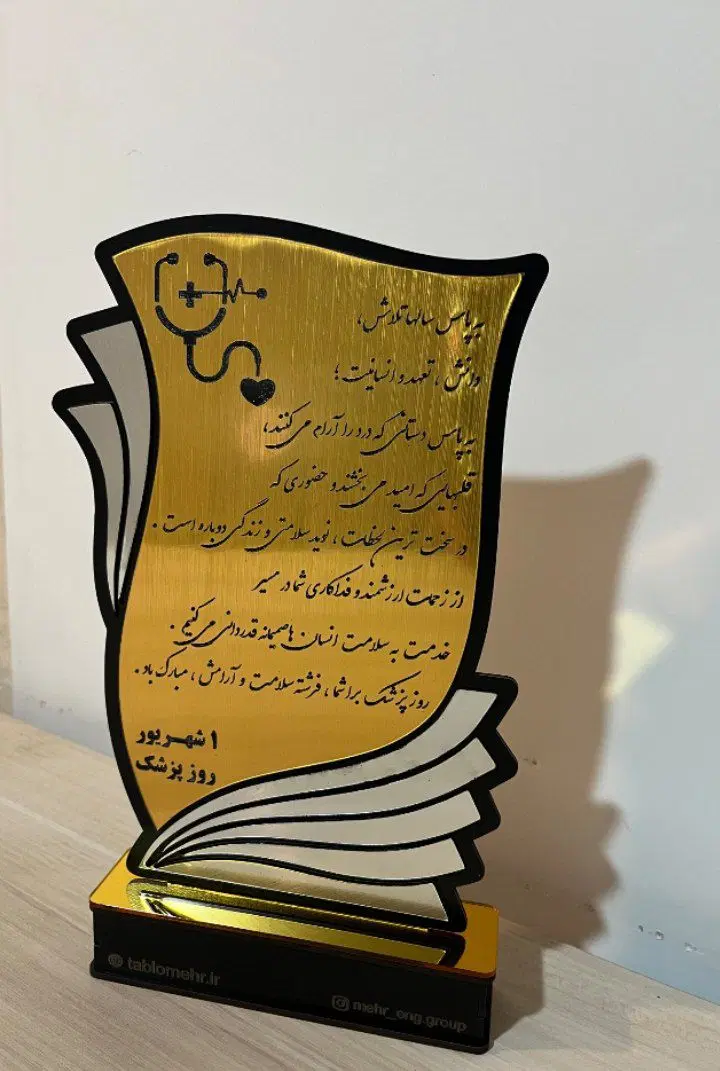 به پاس سالها تلاش،
دانش ، تعهد و انسانیت ؛
به پاس دستانی که درد را آرام می کنند،
قلبهایی که امید می بخشند و حضوری که
در سخت ترین لحظات ، نوید سلامتی و زندگی دوباره است .
از زحمات ارزشمند و فداکاری شما در مسیر
خدمت به سلامت انسان ها صمیمانه قدردانی می کنیم .
روز پزشک بر شما ، فرشته سلامت و آرامش ، مبارک باد .
۱ شهریور
روز پزشک
tablomehr.ir
mehr_eng.group